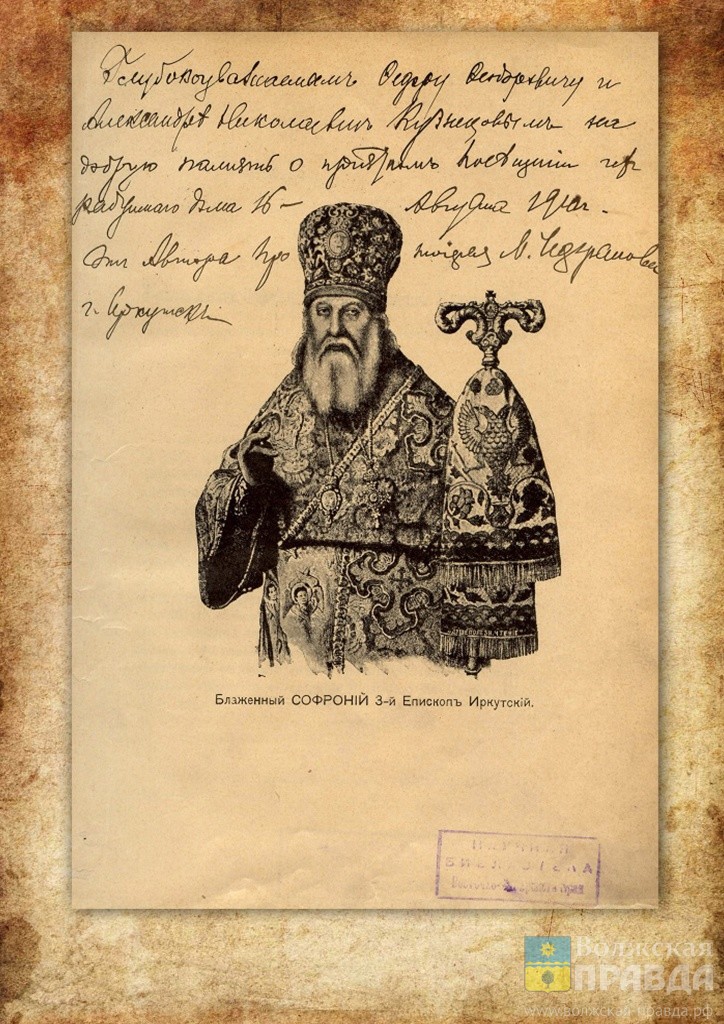 Глубокоуважаемымъ Федору Федоровичу и
Александрѣ Николаевнѣ Кузнецовымъ на
добрую память о прiятномъ посѣщенiи
дома 16 – Августа
Отъ Автора про тоiерея
г. Иркутскъ
Блаженный СОФРОНIЙ 3-й Епископъ Иркутскiй.
НАУЧНАЯ
БИБЛIОТЕКА
Волжская
ПРАВДА
www.волжская-правда.рф